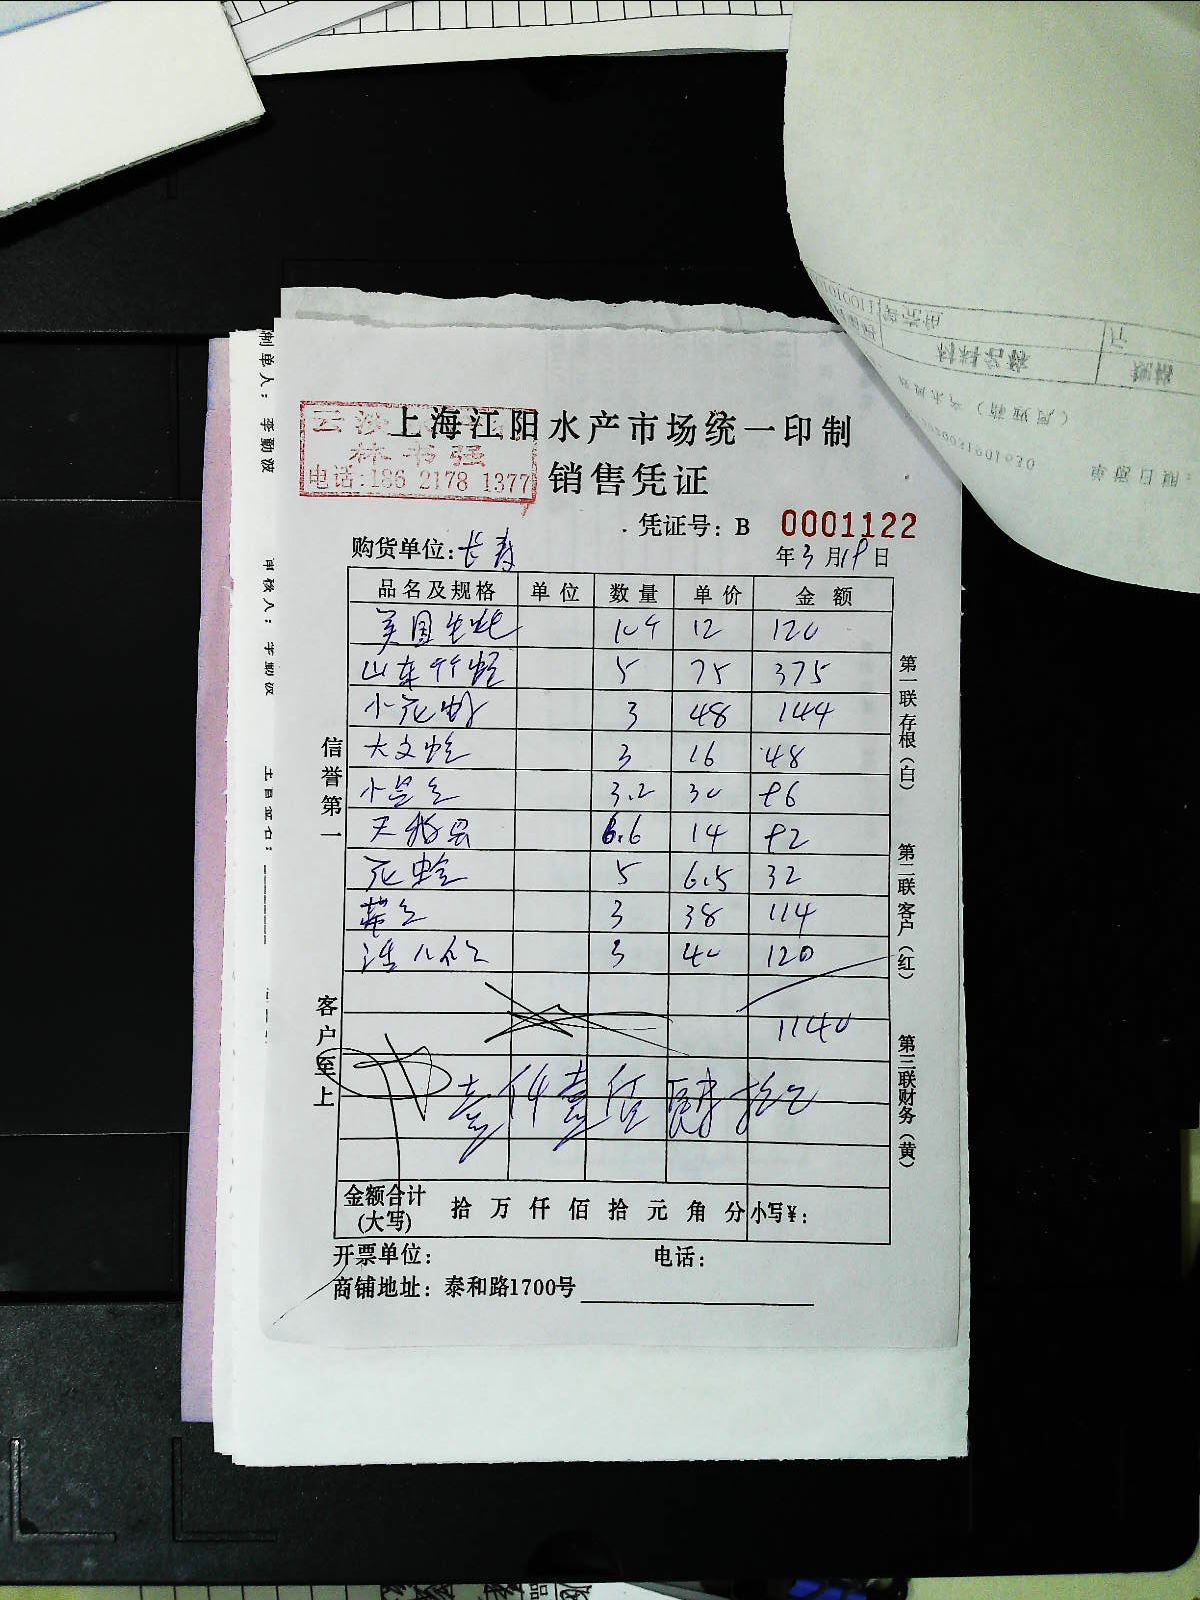 上海江阳水产市场统一印制
销售凭证
林书强
电话:186 2178 1377
凭证号: B 0001122
购货单位: 长寿
年3月19日
品名及规格 单位 数量 单价 金额
美国生蚝 10个 12 120
山东竹蛏 5 75 375
小花螺 3 48 144
大文蛤 3 16 48
3.2 30 96
6.6 14 92
花蛤 5 6.5 32
3 38 114
3 40 120
1140
壹仟壹佰肆拾元
金额合计
(大写) 拾 万 仟 佰 拾 元 角 分 小写¥:
开票单位: 电话:
商铺地址: 泰和路1700号
信誉第一
客户至上
第一联存根(白)
第二联客户(红)
第三联财务(黄)
制单人: 李勤波
审核人: 李勤波